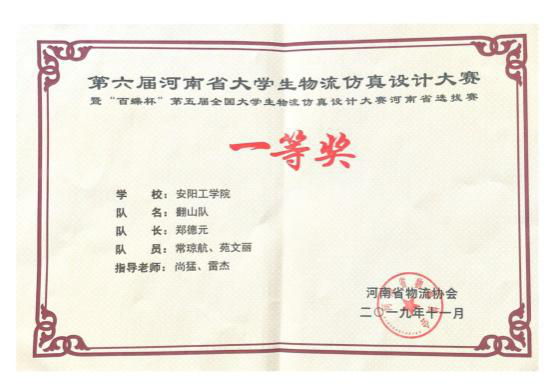 第六届河南省大学生物流仿真设计大赛
暨“百蝶杯”第五届全国大学生物流仿真设计大赛河南省选拔赛
一等奖
学 校：安阳工学院
队 名：翻山队
队 长：郑德元
队 员：常琼航、苑文丽
指导老师：尚猛、雷杰
河南省物流协会
二〇一九年十一月